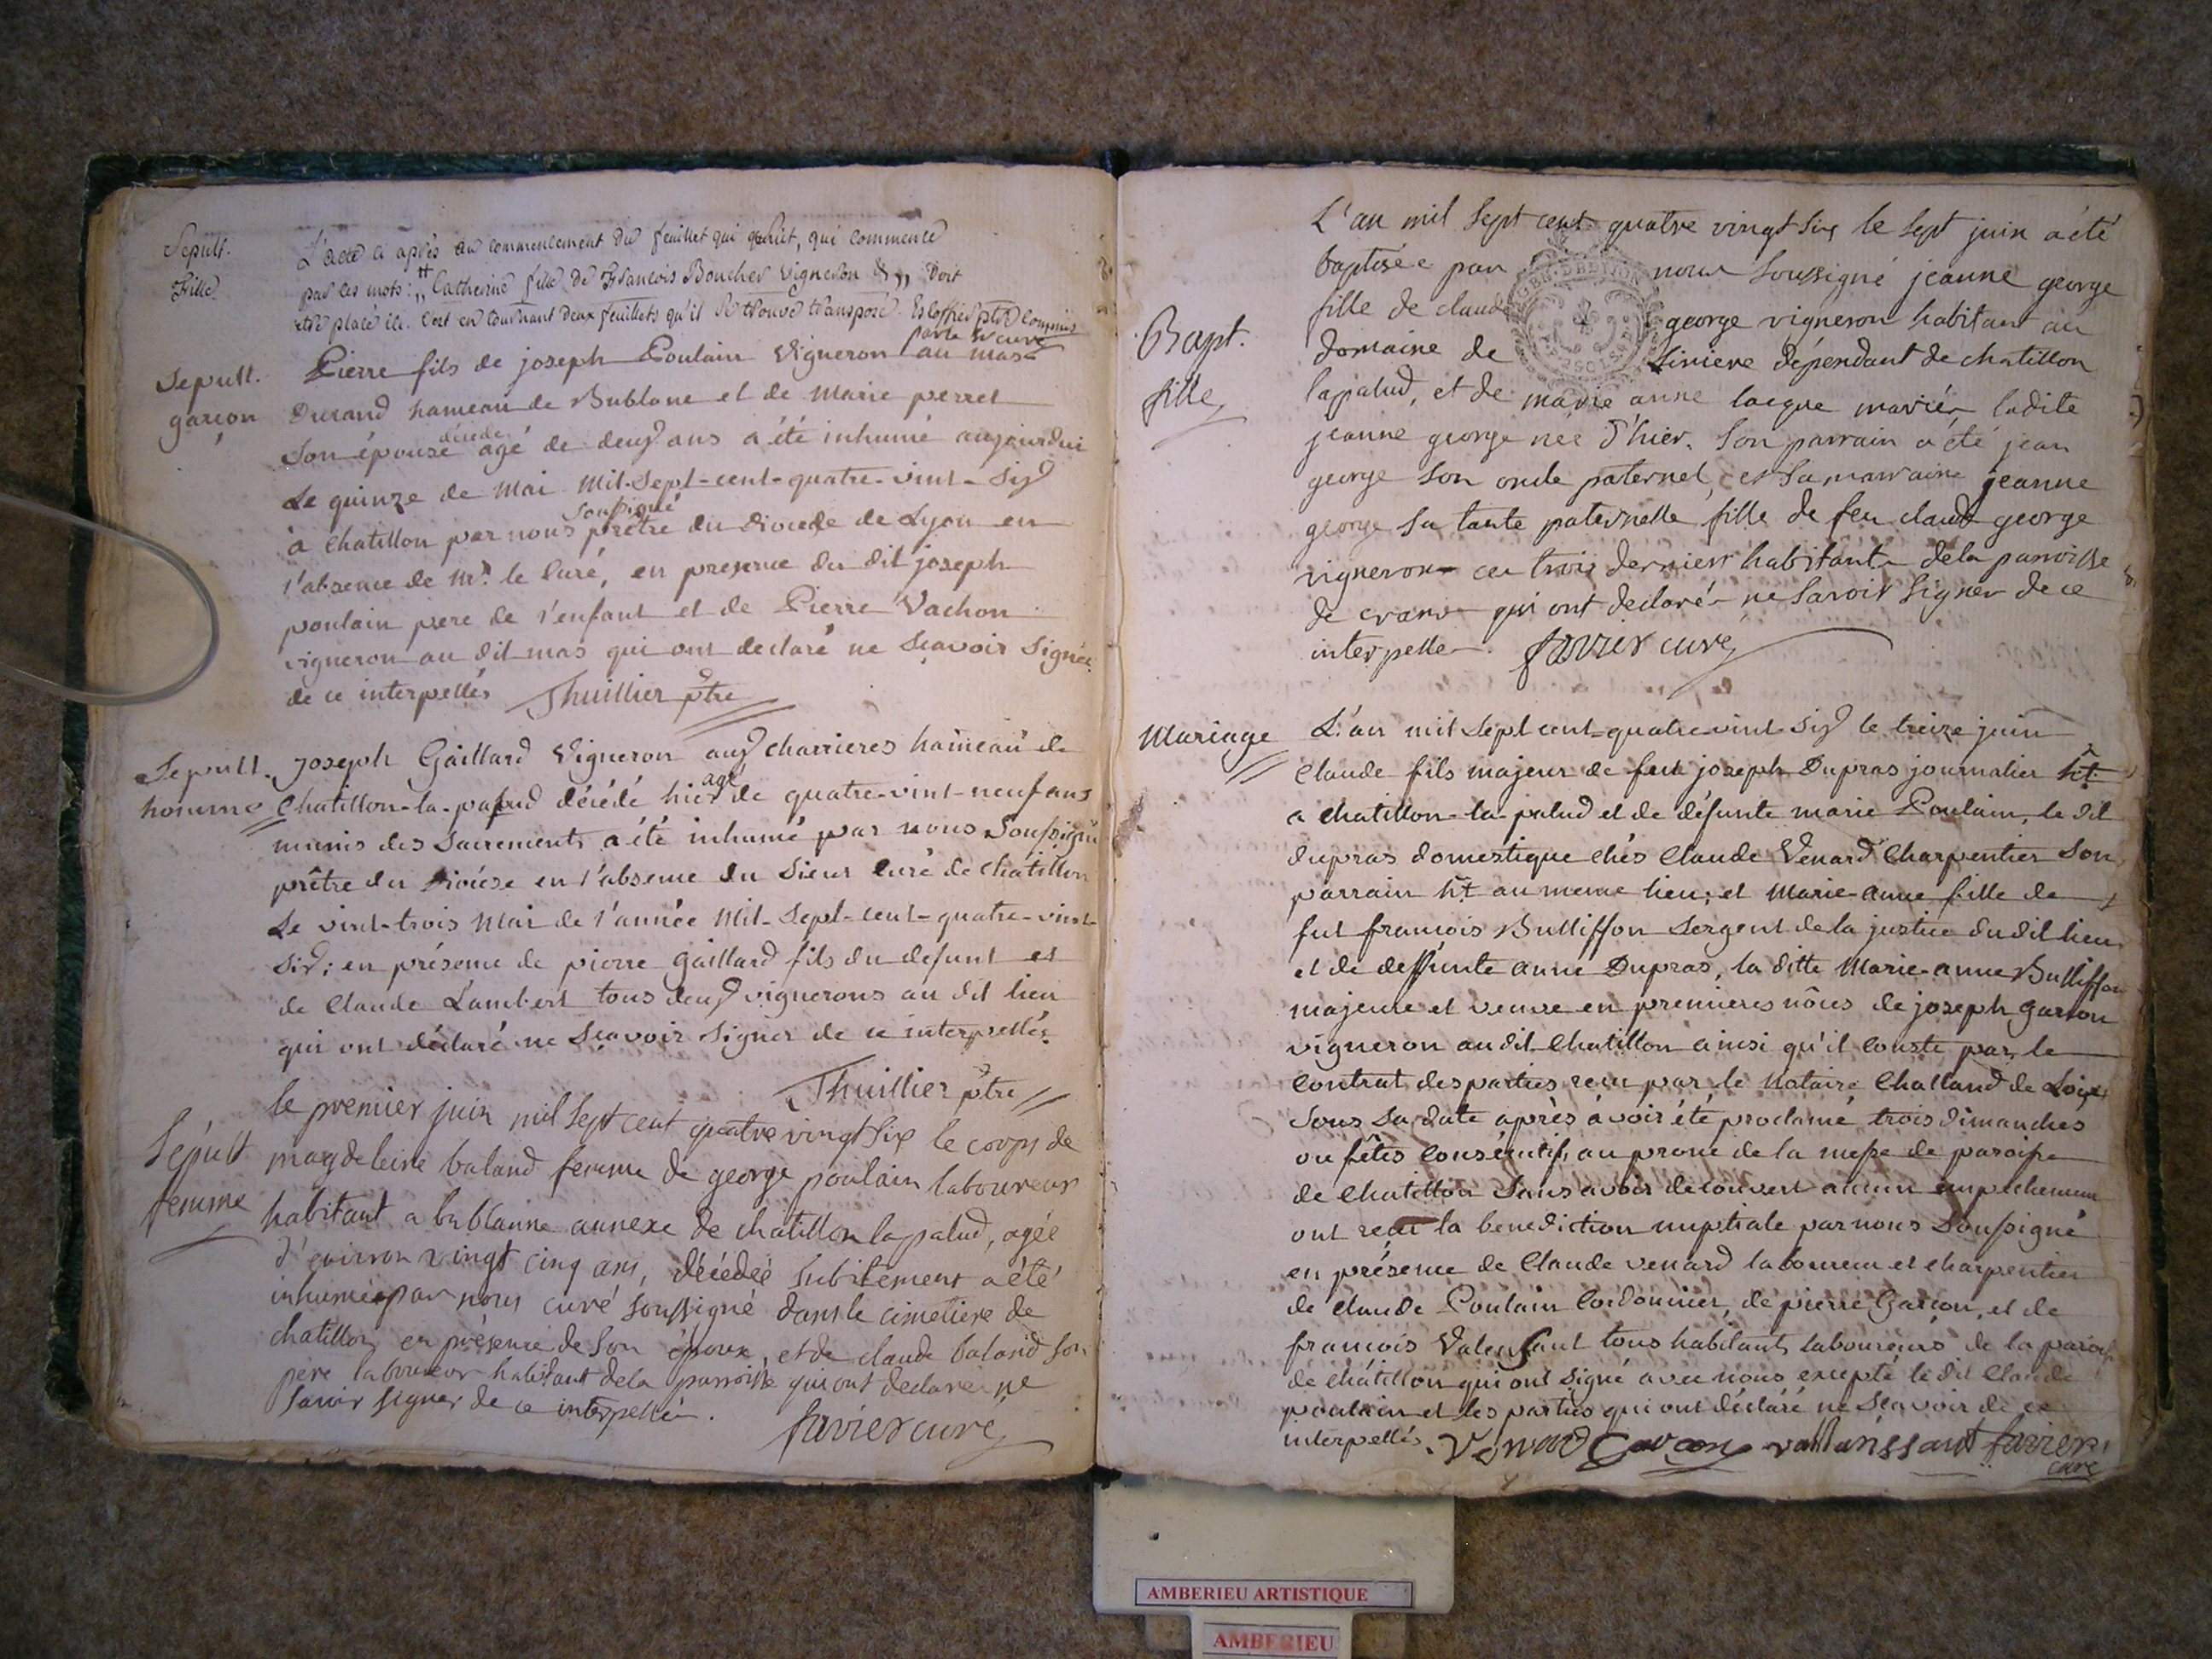 Sepult.
Fille
L'acte ci après au commencement du feuillet qui suit, qui commence
par ces mots: „Catherine fille de François Boucher vigneron &„ doit
etre placé ici. C'est en tournant deux feuillets qu'il se trouve transposé. ptre commis
par le Sr curé
Sepult.
garçon
Pierre fils de joseph Poulain Vigneron au mas
Durand hameau de Bublane et de Marie perret
son épouse décédé agé de deux ans a été inhumé aujourdui
Le quinze de Mai Mil-Sept-cent-quatre-vint-Six
à Chatillon par nous soussigné prêtre du diocèse de Lyon en
l'absence de Mr. le Curé, en presence du dit joseph
poulain pere de l'enfant et de Pierre Vachon
vigneron au dit mas qui ont declaré ne Sçavoir Signer
de ce interpellés Thuillier ptre
Sepult.
homme
Joseph Gaillard Vigneron aux charrieres hameau de
Chatillon-la-palud décédé hier agé de quatre-vint-neuf ans
munis des Sacrements a été inhumé par nous Soussigné
prêtre du diocèse en l'absence du Sieur Curé de Châtillon
Le vint-trois Mai de l'année Mil-Sept-cent-quatre-vint-
Six; en présence de pierre Gaillard fils du defunt et
de Claude Lambert tous deux vignerons au dit lieu
qui ont déclaré ne Sçavoir Signer de ce interpellés
Thuillier ptre
Sépult
femme
le premier juin mil sept cent quatre vingt six le corps de
magdeleine baland femme de george poulain laboureur
habitant a bublanne annexe de chatillon lapalud, agée
d'environ vingt cinq ans, décédée subitement a été
inhumée par nous curé soussigné dans le cimetiere de
chatillon en présence de son époux, et de claude baland son
pere laboureur habitant dela parroisse qui ont declaré ne
savoir signer de ce interpellés.
favier curé
Bapt.
fille
L'an mil sept cent quatre vingt six le sept juin a été
baptisée par nous soussigné jeanne george
fille de claude george vigneron habitant au
domaine de liniere dépendant de chatillon
lapalud, et de marie anne lacque mariés ladite
jeanne george née d'hier. son parrain a été jean
george son oncle paternel, et sa marraine jeanne
george sa tante paternelle fille de feu claude george
vigneron ces trois derniers habitants dela parroisse
de crans qui ont declaré ne savoir signer de ce
interpellés. favier curé
Mariage
L'an mil Sept cent-quatre-vint Six le treize juin
Claude fils majeur de feu joseph Dupras journalier ht.
a Chatillon-la-palud et de défunte marie Poulain, le dit
dupras domestique chés Claude Venard Charpentier Son
parrain ht. au meme lieu; et Marie-anne fille de
fut françois Bulliffon Sergent de la justice du dit lieu
et de deffunte anne Dupras, la ditte Marie-anne Bulliffon
majeure et veuve en premieres nôces de joseph garson
vigneron au dit Chatillon ainsi qu'il conste par le
Contrat des parties recu par le Notaire Challand de Loix
Sous sa date après avoir été proclamé trois dimanches
ou fêtes Consécutifs au prone de la messe de paroisse
de Chatillon Sans avoir découvert aucun empechement
ont reçu la benediction nuptiale par nous Soussigné
en présence de Claude venard laboureur et charpentier
de Claude Poulain Cordonnier, de pierre Garson, et de
françois Valensant tous habitants laboureurs de la paroisse
de châtillon qui ont Signé avec nous excepté le dit Claude
poulain et les parties qui ont déclaré ne Sçavoir de ce
interpellés. Venard Garson vallanssant favier
curé
AMBERIEU ARTISTIQUE
AMBERIEU